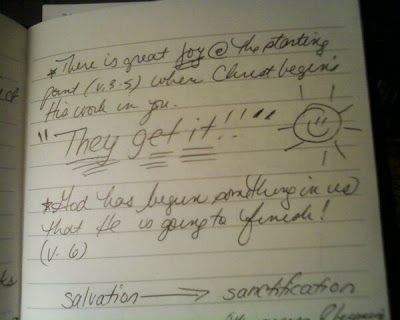 * There is great joy @ the starting
point (v. 3-5) when Christ begins
His work in you.
"They get it!!"
* God has begun something in us
that He is going to finish!
(v. 6)
salvation → sanctification